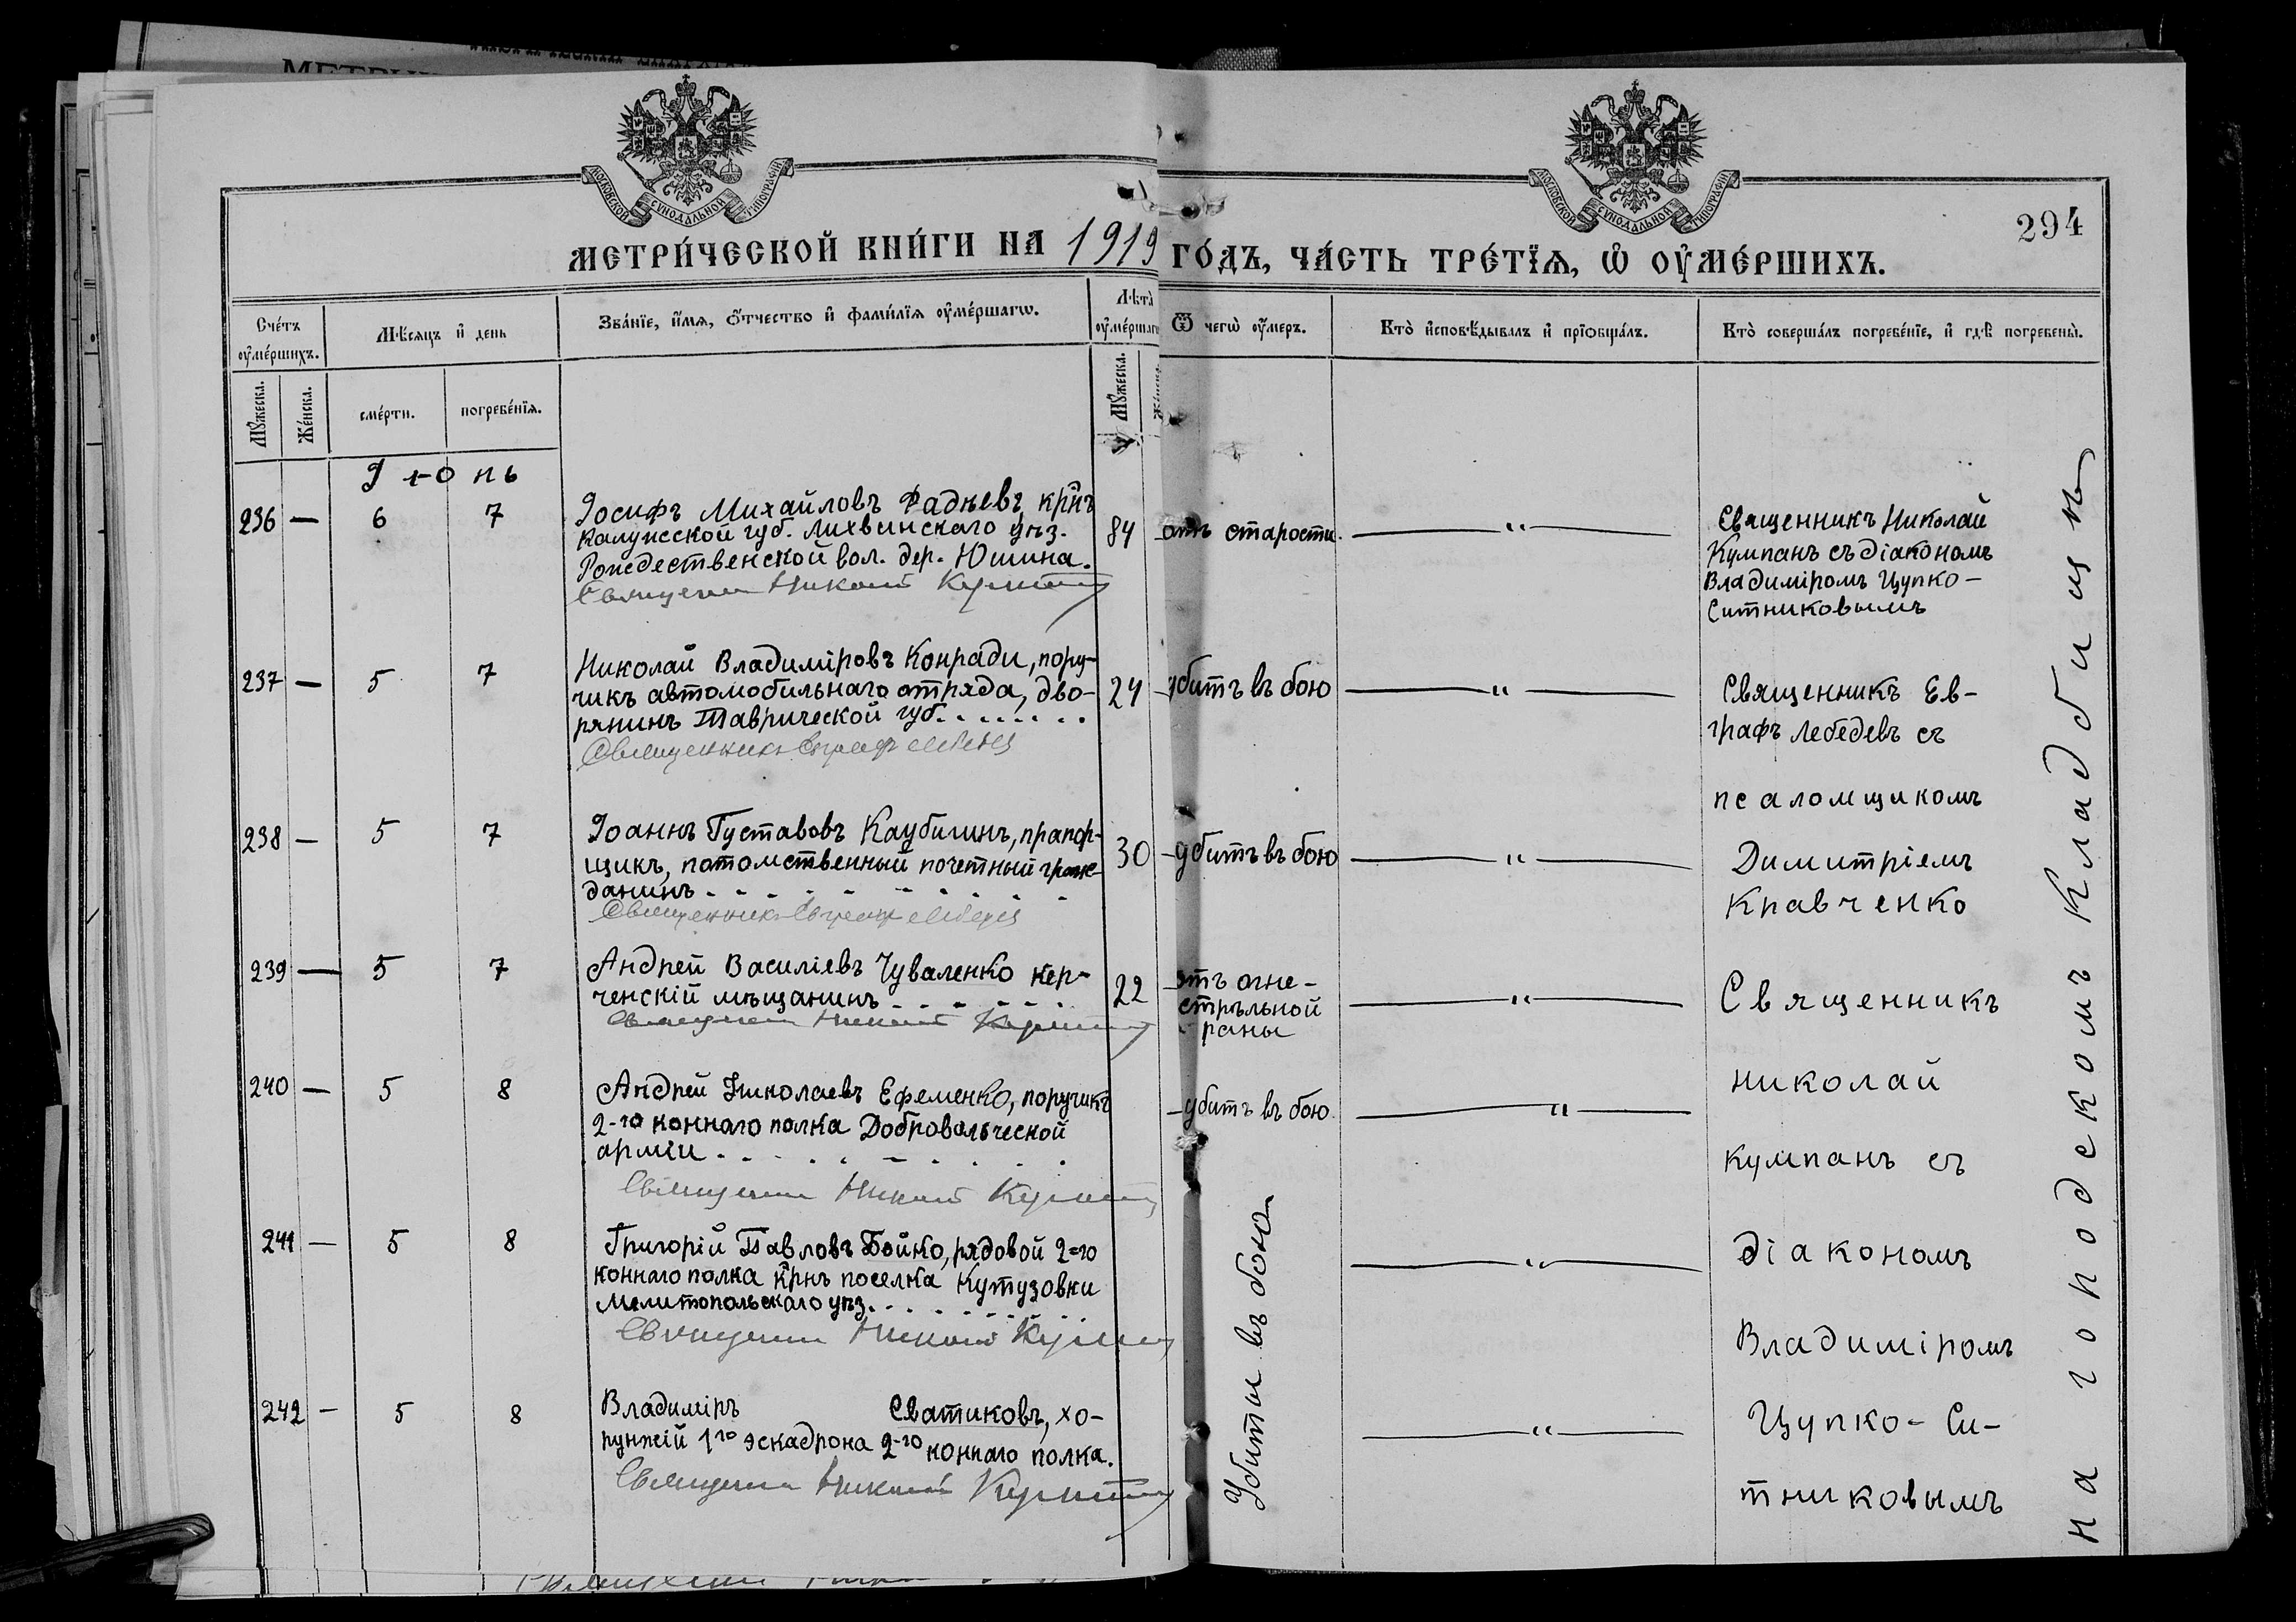 МОСКОВСКОЙ СѴНОДАЛЬНОЙ ТИПОГРАФІИ
МОСКОВСКОЙ СѴНОДАЛЬНОЙ ТИПОГРАФІИ
294
МЕТРИ́ЧЕСКОЙ КНИ́ГИ НА 1919 ГО́ДЪ, ЧА́СТЬ ТРЕ́ТІѦ, Ѡ҆ ОУ҆МЕ́РШИХЪ.
Сче́тъ оу҆ме́ршихъ.
Мѣ́сяцъ и҆ день
Зва́нїе, и҆́мѧ, ѻ҆́тчество и҆ фами́лїѧ оу҆ме́ршагѡ.
Лѣта̀ оу҆ме́ршагѡ
Ѿ чегѡ̀ оу҆́меръ.
Кто̀ и҆сповѣ́дывалъ и҆ прїѡбща́лъ.
Кто̀ соверша́лъ погребе́нїе, и҆ гдѣ̀ погребены̀.
Мꙋ́жеска.
Же́нска.
сме́рти.
погребе́нїѧ.
Мꙋ́жеска.
Іюнь
236 — 6 7 Іосифъ Михайловъ Фадѣевъ, крнъ
Калужской губ. Лихвинскаго уѣз.
Рождественской вол. дер. Юшина.
Священникъ Николай Кумпанъ
84 отъ старости. — " —
Священникъ Николай
Кумпанъ съ діакономъ
Владиміромъ Цупко-
Ситниковымъ
237 — 5 7 Николай Владиміровъ Конради, пору-
чикъ автомобильнаго отряда, дво-
рянинъ Таврической губ. . . . . . . .
Священникъ Евграфъ Лебедевъ
24 убитъ въ бою — " —
Священникъ Ев-
графъ Лебедевъ съ
псаломщикомъ
238 — 5 7 Іоаннъ Густавовъ Каубигинъ, прапор-
щикъ, потомственный почетный граж-
данинъ . . . . . . . . .
Священникъ Евграфъ Лебедевъ
30 убитъ въ бою — " —
Димитріемъ
Кравченко
239 — 5 7 Андрей Василіевъ Чуваленко кер-
ченскій мѣщанинъ . . . . . .
Священникъ Николай Кумпанъ
22 отъ огне-
стрѣльной
раны
— " —
Священникъ
240 — 5 8 Андрей Николаевъ Ефеменко, поручикъ
2-го коннаго полка Добровольческой
арміи . . . . . . . . . .
Священникъ Николай Кумпанъ
убитъ въ бою. — " —
Николай
Кумпанъ съ
241 — 5 8 Григорій Павловъ Бойко, рядовой 2-го
коннаго полка крнъ поселка Кутузовки
Мелитопольскаго уѣз. . . . . . . .
Священникъ Николай Кумпанъ
— " —
діакономъ
Владиміромъ
242 — 5 8 Владиміръ Сватиковъ, хо-
рунжій 1го эскадрона 2-го коннаго полка.
Священникъ Николай Кумпанъ
Убиты въ бою
— " —
Цупко-Си-
тниковымъ
на городскомъ кладбищѣ